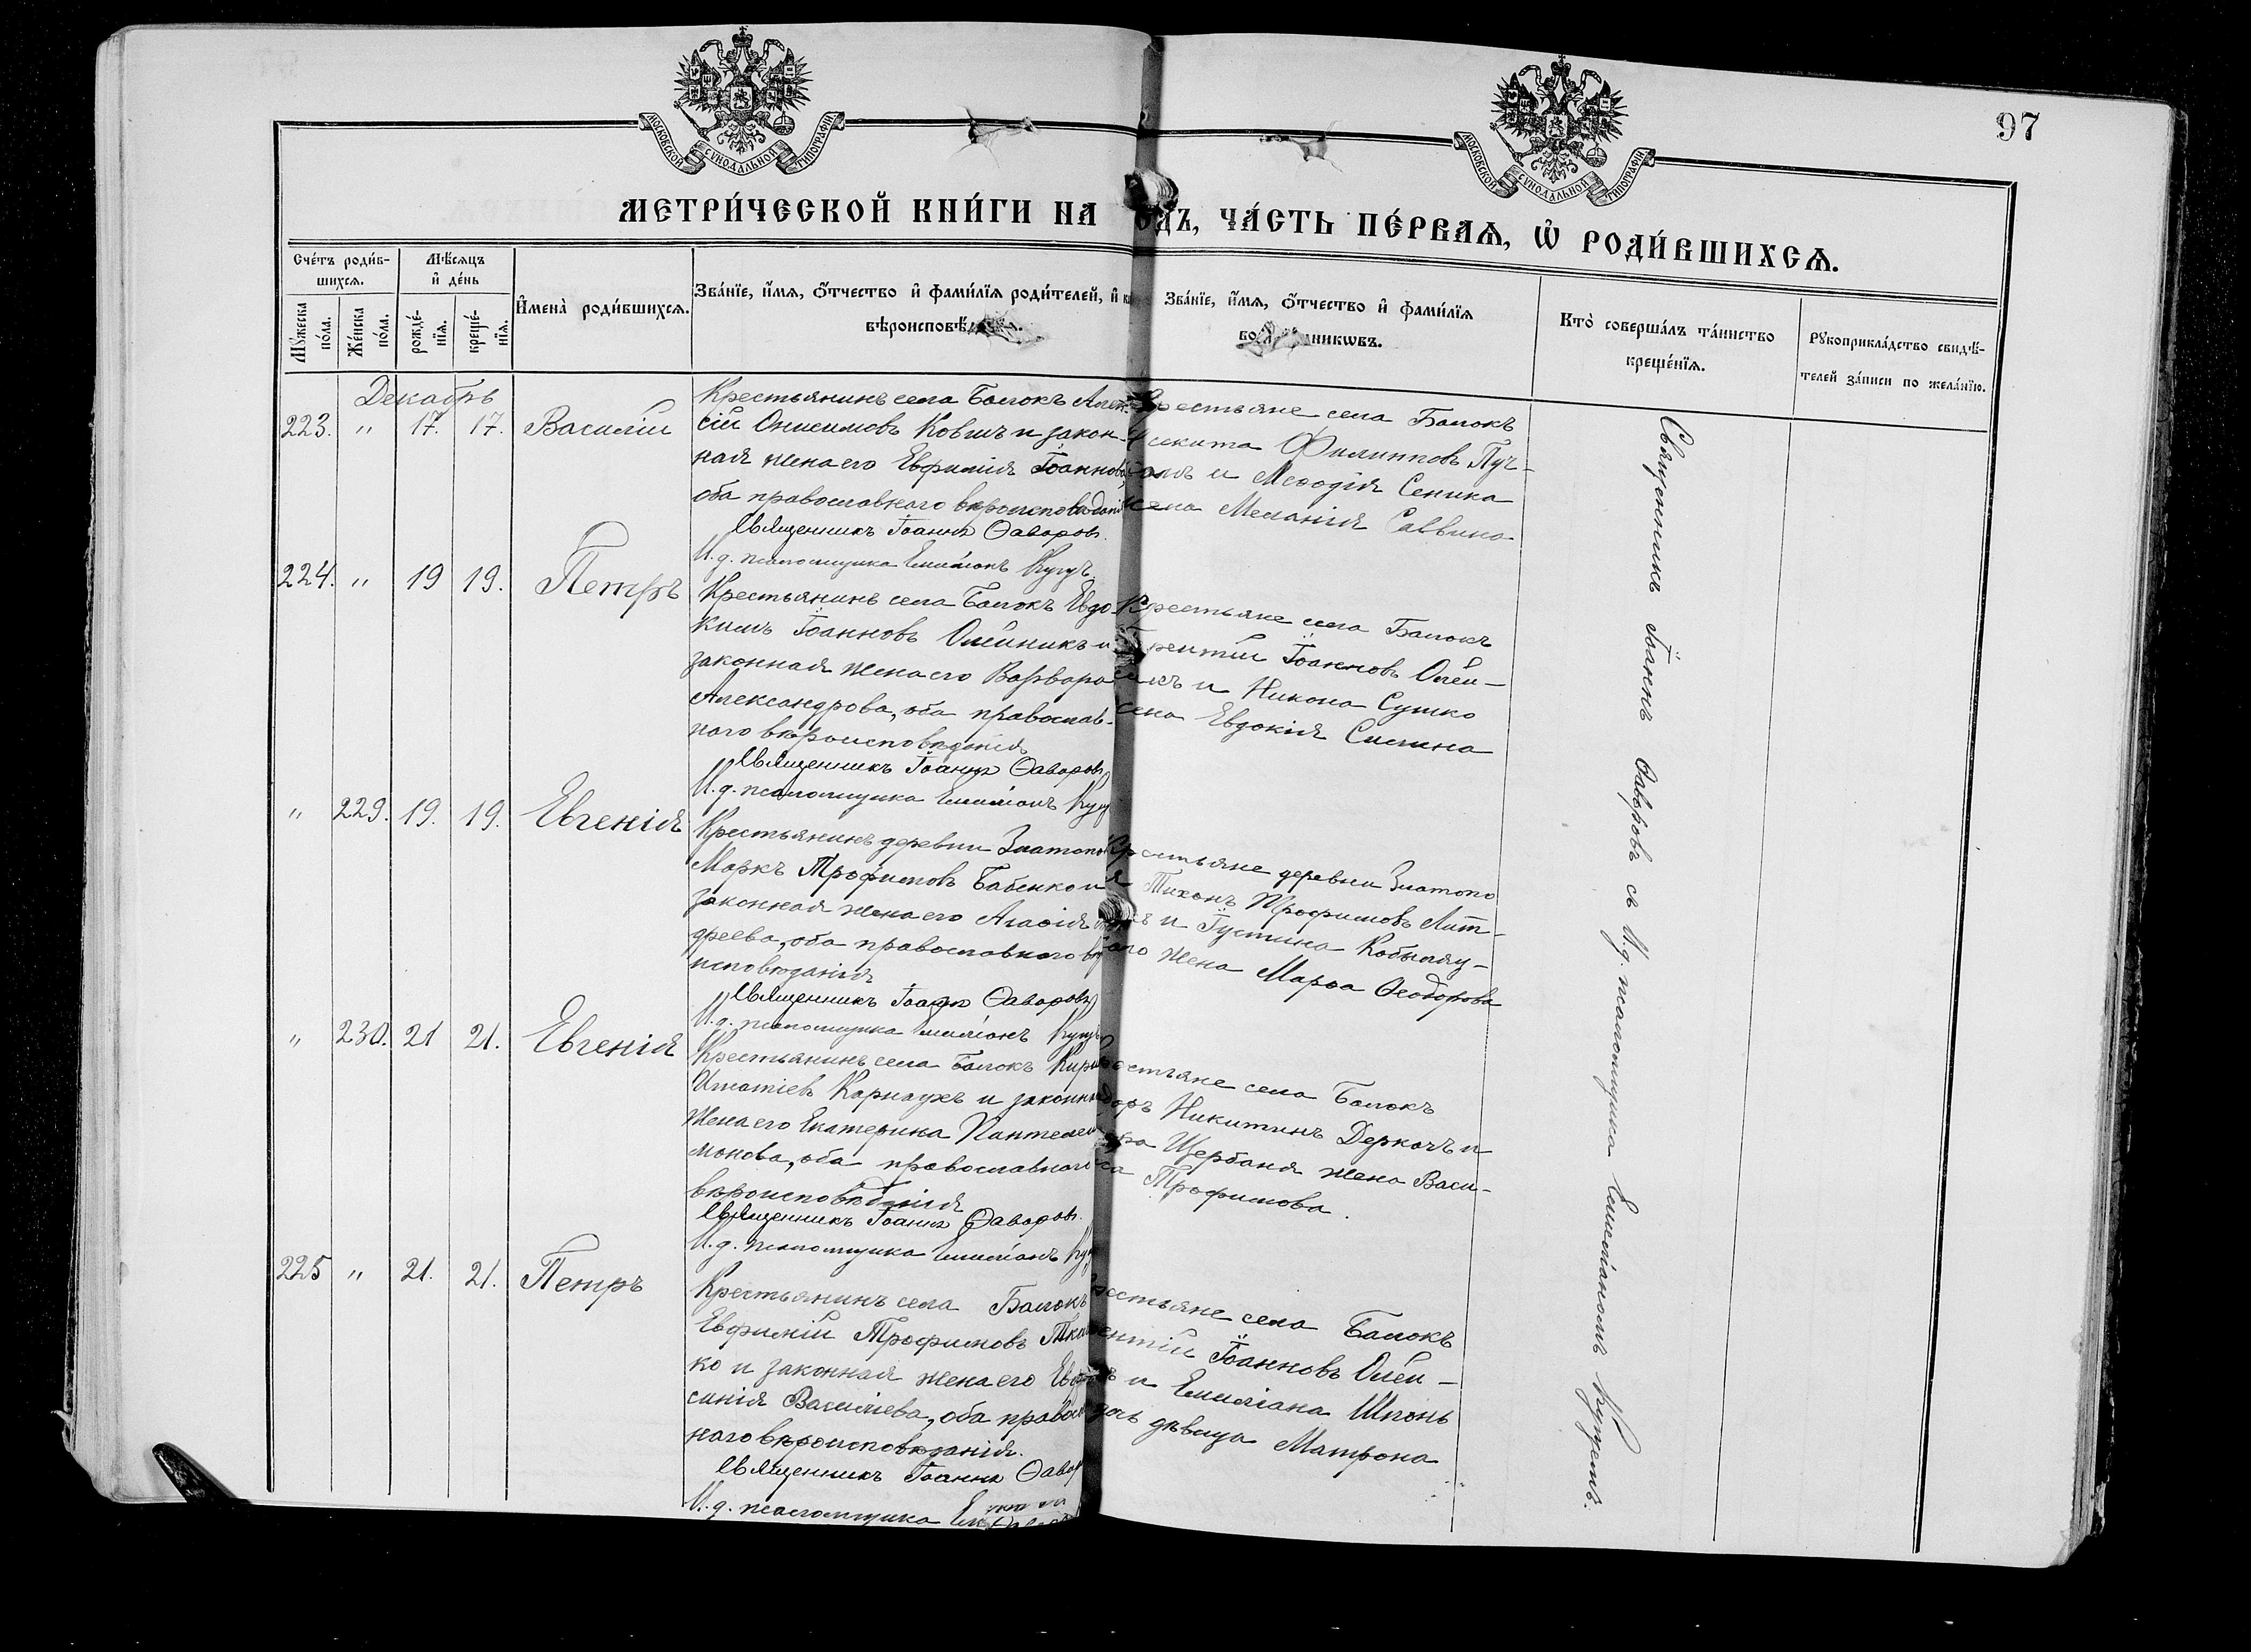 97
МОСКОВСКОЙ СѴНОДАЛЬНОЙ ТИПОГРАФІИ
МОСКОВСКОЙ СѴНОДАЛЬНОЙ ТИПОГРАФІИ
МЕТРИ́ЧЕСКОЙ КНИ́ГИ НА ОДЪ, ЧА́СТЬ ПЕ́РВАѦ, Ѡ҆ РОДИ́ВШИХСѦ.
Сче́тъ роди́в-
шихсѧ.
Мѣ́сѧцъ
и҆ де́нь
Мꙋ́жеска
по́ла.
Же́нска
по́ла.
рожде́-
нїѧ.
креще́-
нїѧ.
И҆мена̀ роди́вшихсѧ.
Зва́нїе, и҆́мѧ, ѻ҆́тчество и҆ фами́лїѧ роди́телей, и҆
вѣроисповѣ́
Зва́нїе, и҆́мѧ, ѻ҆́тчество и҆ фами́лїѧ
никѡвъ.
Кто̀ соверша́лъ та́инство
креще́нїѧ.
Рꙋкоприкла́дство свидѣ́-
телей за́писи по жела́нїю.
Декабрь
223. " 17. 17. Василій
Крестьянинъ села Балокъ Алек-
сій Онисимовъ Ковшъ и закон-
ная жена его Евфимія Іоаннова,
оба православнаго вѣроисповѣданія
Священникъ Іоаннъ Ѳаворовъ.
И. д. псаломщика Емиліанъ Куцъ.
Крестьяне села Балокъ
Никита Филипповъ Пуг-
и Меѳодія Сеника
жена Меланія Саввина
224. " 19 19. Петръ
Крестьянинъ села Балокъ Евдо-
кимъ Іоанновъ Олейникъ и
законная жена его Варвара
Александрова, оба православ-
наго вѣроисповѣданія
Священникъ Іоаннъ Ѳаворовъ
И. д. псаломщика Емиліанъ Куц
Крестьяне села Балокъ
Іоанновъ Олей-
икъ и Никона Сушко
жена Евдокія Силина
" 229. 19. 19. Евгенія
Крестьянинъ деревни Златопо
Маркъ Трофимовъ Бабенко и
законная жена его Агаѳія Ан
дреева, оба православнаго вѣ
исповѣданія
Священникъ Іоаннъ Ѳаворовъ
И. д. псаломщика Емиліанъ Куцъ
Крестьяне деревни Златопо
Тихонъ Трофимовъ Лит-
и Іустина Кобыляц-
каго жена Марѳа Ѳеодорова
" 230. 21 21. Евгенія
Крестьянинъ села Балокъ Кири
Игнатіевъ Карнаухъ и законная
жена его Екатерина Пантелеи
монова, оба православнаго
вѣроисповѣданія
Священникъ Іоаннъ Ѳаворовъ.
И. д. псаломщика Емиліанъ Куц
естьяне села Балокъ
доръ Никитинъ Деркачъ и
Щербаня жена Васи-
са Трофимова.
225 " 21. 21. Петръ
Крестьянинъ села Балокъ
Евфимій Трофимовъ Тка
ко и законная жена его Евфро
синія Василіева, оба православ
наго вѣроисповѣданія.
Священникъ Іоаннъ Ѳавор
И. д. псаломщика Ем
рестьяне села Балокъ
ентій Іоанновъ Олей-
и Емиліана Шпонь
дочь дѣвица Матрона
Священникъ Іоаннъ Ѳаворовъ съ И. д. псаломщика Емиліаномъ Куцемъ.